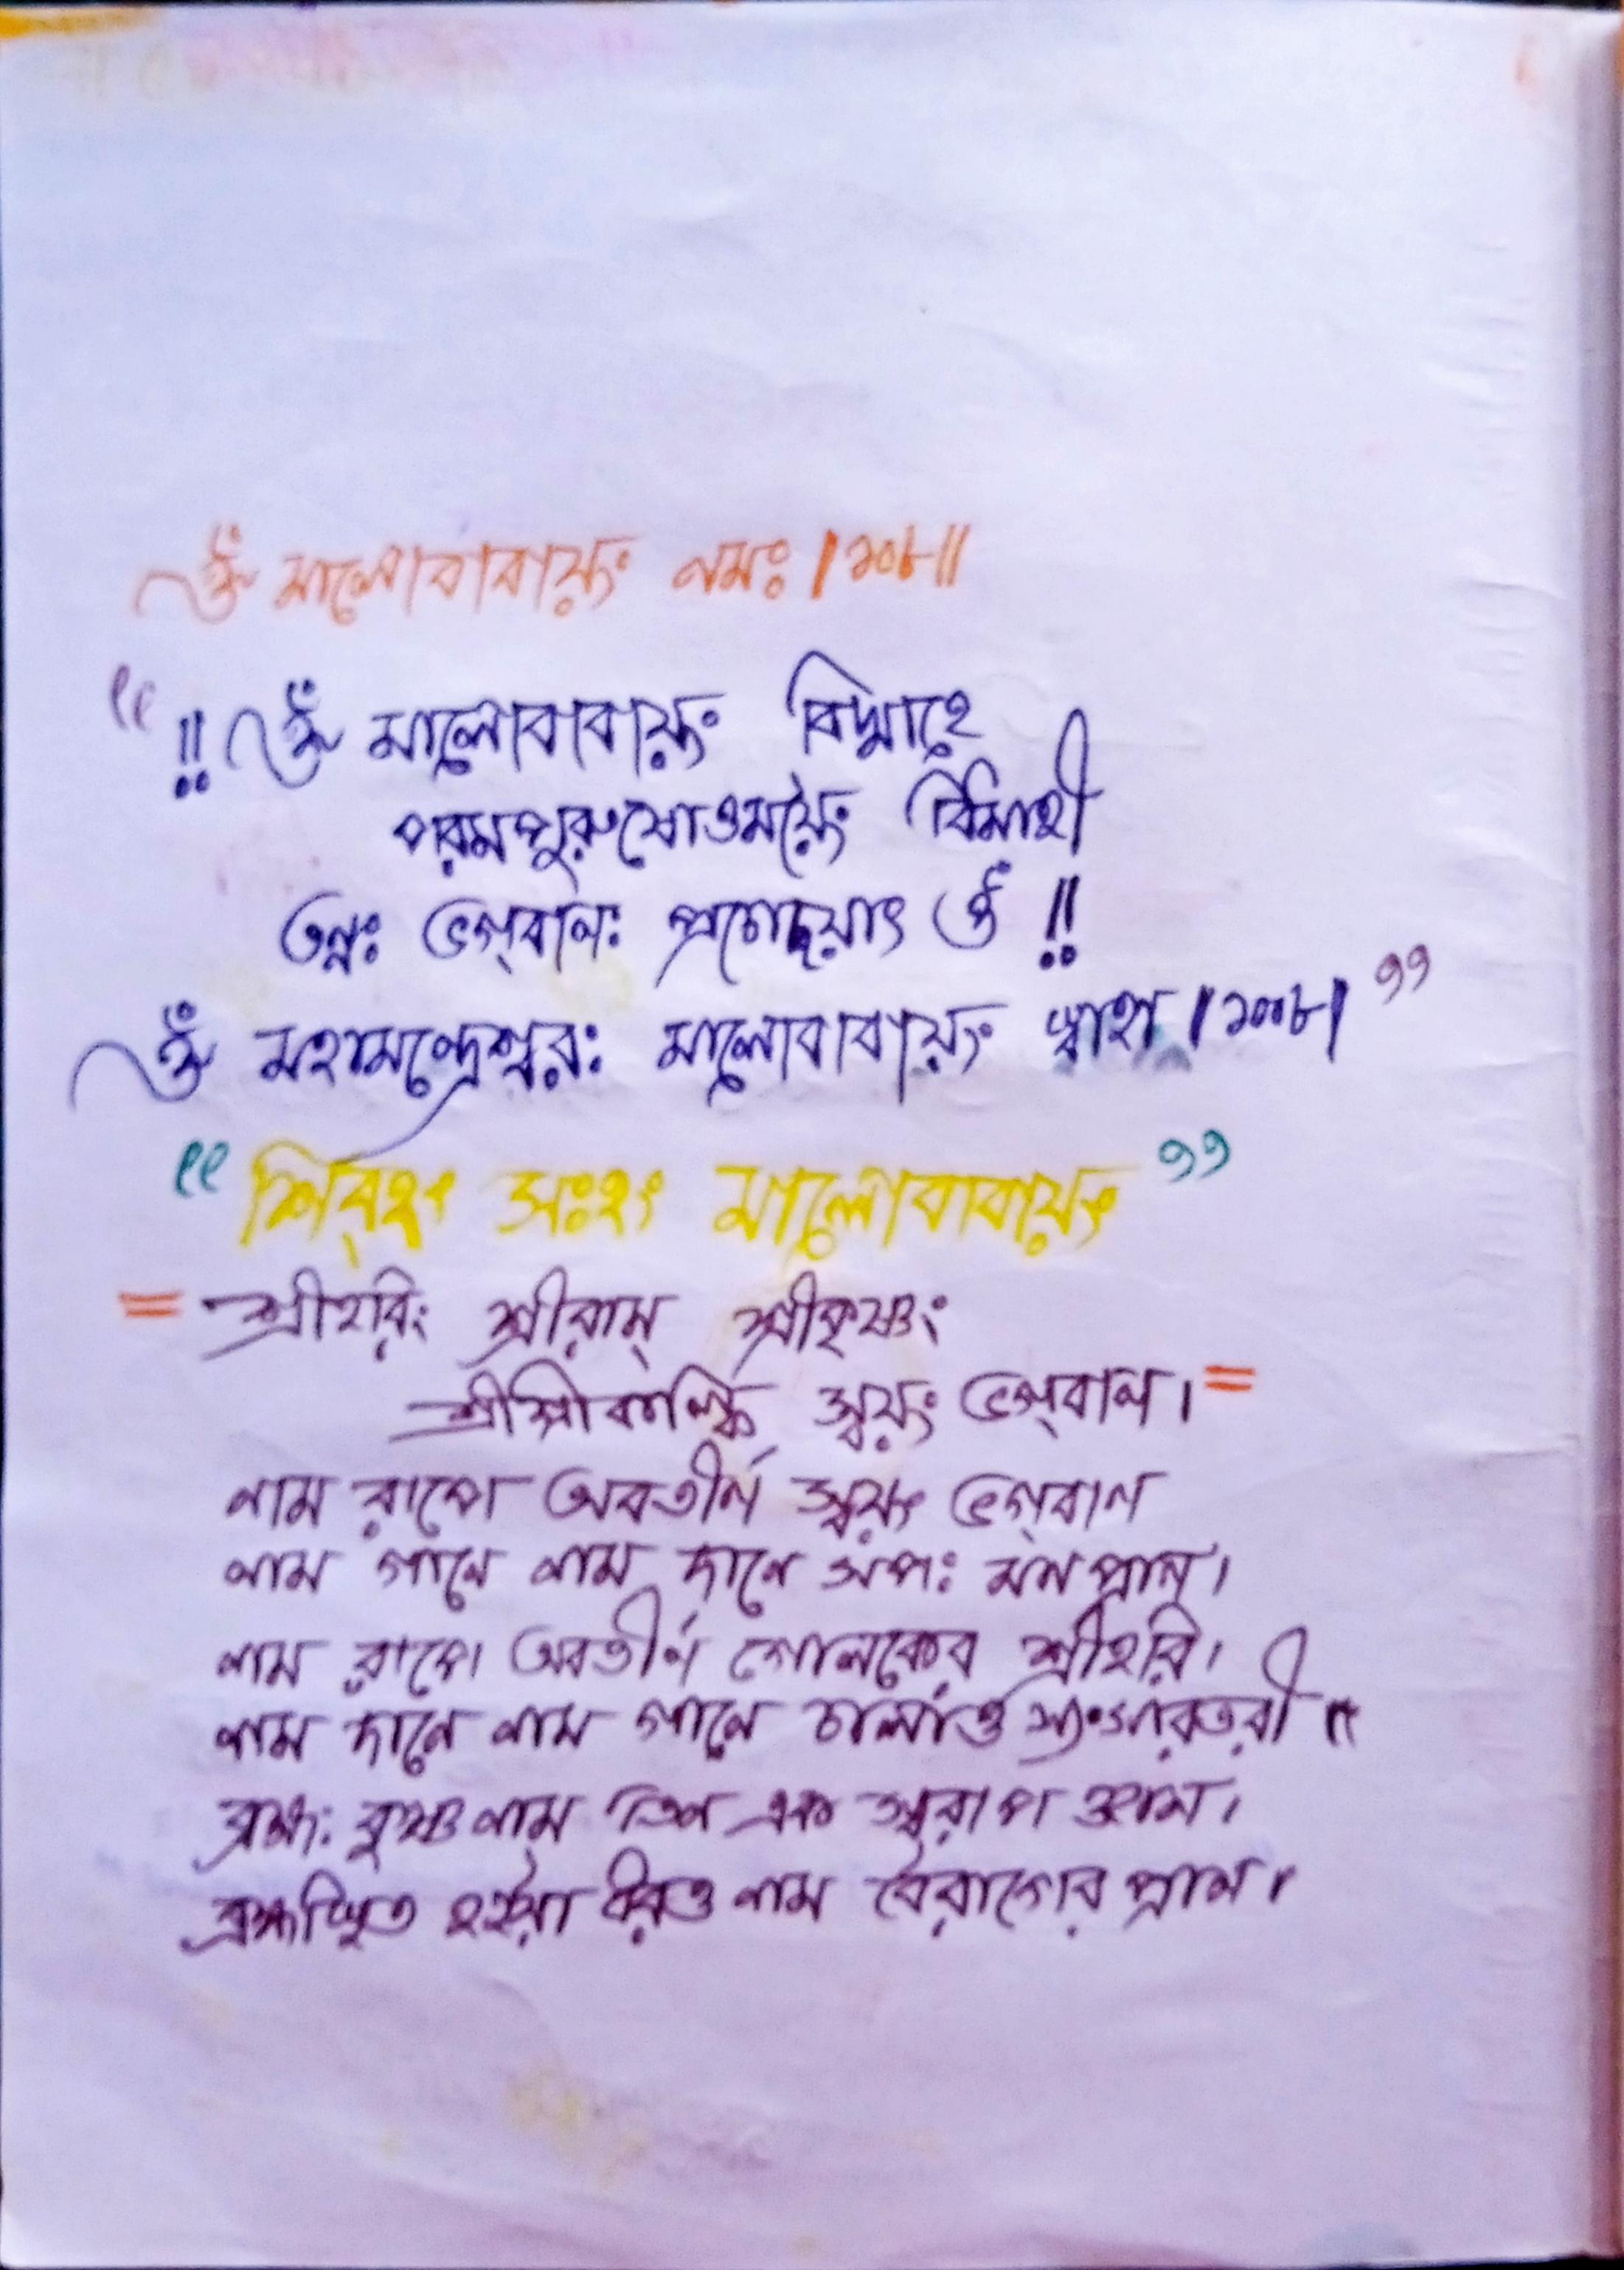 ওঁ মালোবাবায়ং নমঃ।১০৮॥
“ ‼ ওঁ মালোবাবায়ং বিদ্মাহে
পরমপুরুষোত্তময়ৈং ধিমাহী
তন্নঃ ভগ্‌বানঃ প্রচোদয়াৎ ওঁ ‼
ওঁ মহামন্দ্রেশ্বরঃ মালোবাবায়ং স্বাহা।১০০৮। ”
“ শিব্‌হং সঃহং মালোবাবায়ং ”
= শ্রীহরিং শ্রীরাম্ শ্রীকৃষ্ণং
শ্রীশ্রীকল্কি স্বয়ং ভগ্‌বান। =
নাম রূপে অবতীর্ন স্বয়ং ভগ্‌বান
নাম গানে নাম দানে সপঃ মন প্রান্।
নাম রূপে অবতীর্ন গোলকের শ্রীহরি।
নাম দানে নাম গানে চালাও সংসারতরী
ব্রহ্ম: কৃষ্ণ নাম তিন এক স্বরূপ
হইয়া নাম বৈরাগ্যের প্রান।